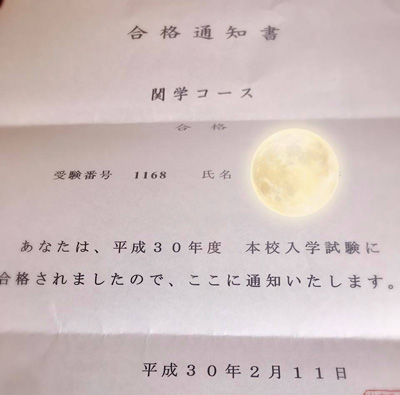 合格通知書
関学コース
合格
受験番号 1168 氏名
あなたは、平成30年度 本校入学試験に
合格されましたので、ここに通知いたします。
平成30年2月11日